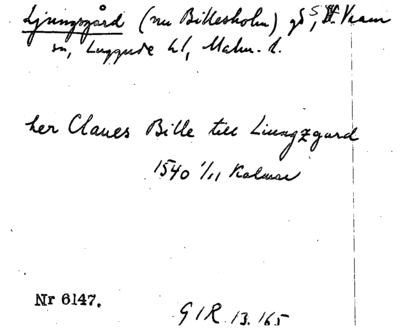 Ljungsgård (nu Billesholm) gd S, N. Vram
sn, Luggude hd, Malm. l.
her Claues Bille till Liungzgard
1540 1/11 Kalmar
Nr 6147.
GIR. 13. 165